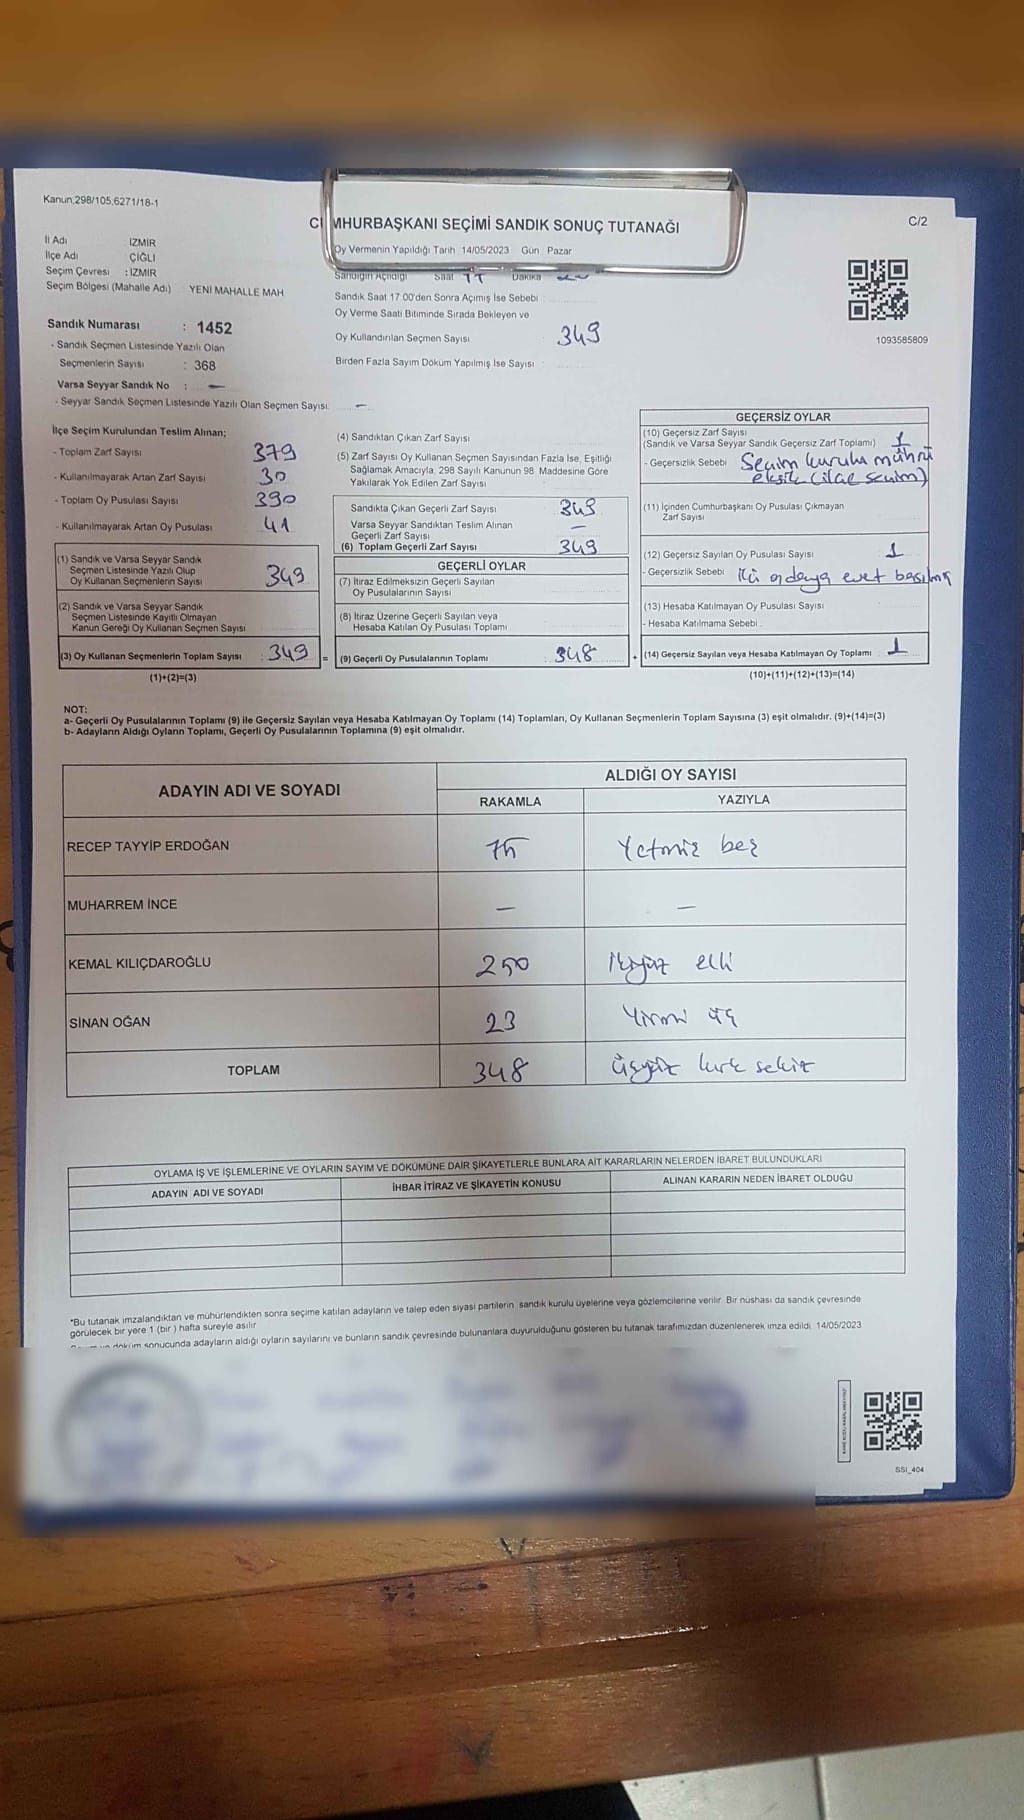 Kanun;298/105,6271/18-1
C/2
CUMHURBAŞKANI SEÇİMİ SANDIK SONUÇ TUTANAĞI
Oy Vermenin Yapıldığı Tarih 14/05/2023 Gün Pazar
İl Adı İZMİR
İlçe Adı ÇİĞLİ
Seçim Çevresi : İZMİR
Seçim Bölgesi (Mahalle Adı) YENİ MAHALLE MAH
Sandık Numarası : 1452
- Sandık Seçmen Listesinde Yazılı Olan
Seçmenlerin Sayısı : 368
Varsa Seyyar Sandık No : –
- Seyyar Sandık Seçmen Listesinde Yazılı Olan Seçmen Sayısı –
Sandığın Açıldığı Saat 17 Dakika
Sandık Saat 17 00'den Sonra Açımış İse Sebebi
Oy Verme Saati Bitiminde Sırada Bekleyen ve
Oy Kullandırılan Seçmen Sayısı 349
Birden Fazla Sayım Döküm Yapılmış İse Sayısı
1093585809
İlçe Seçim Kurulundan Teslim Alınan;
- Toplam Zarf Sayısı 379
- Kullanılmayarak Artan Zarf Sayısı 30
- Toplam Oy Pusulası Sayısı 390
- Kullanılmayarak Artan Oy Pusulası 41
(1) Sandık ve Varsa Seyyar Sandık
Seçmen Listesinde Yazılı Olup
Oy Kullanan Seçmenlerin Sayısı 349
(2) Sandık ve Varsa Seyyar Sandık
Seçmen Listesinde Kayıtlı Olmayan
Kanun Gereği Oy Kullanan Seçmen Sayısı
(3) Oy Kullanan Seçmenlerin Toplam Sayısı : 349 =
(1)+(2)=(3)
(4) Sandıktan Çıkan Zarf Sayısı
(5) Zarf Sayısı Oy Kullanan Seçmen Sayısından Fazla İse, Eşitliği
Sağlamak Amacıyla, 298 Sayılı Kanunun 98 Maddesine Göre
Yakılarak Yok Edilen Zarf Sayısı
Sandıkta Çıkan Geçerli Zarf Sayısı 349
Varsa Seyyar Sandıktan Teslim Alınan
Geçerli Zarf Sayısı –
(6) Toplam Geçerli Zarf Sayısı 349
GEÇERLİ OYLAR
(7) İtiraz Edilmeksizin Geçerli Sayılan
Oy Pusulalarının Sayısı
(8) İtiraz Üzerine Geçerli Sayılan veya
Hesaba Katılan Oy Pusulası Toplamı
(9) Geçerli Oy Pusulalarının Toplamı : 348 +
GEÇERSİZ OYLAR
(10) Geçersiz Zarf Sayısı
(Sandık ve Varsa Seyyar Sandık Geçersiz Zarf Toplamı) 1
- Geçersizlik Sebebi Seçim kurulu mührü
eksik (ilçe seçim)
(11) İçinden Cumhurbaşkanı Oy Pusulası Çıkmayan
Zarf Sayısı
(12) Geçersiz Sayılan Oy Pusulası Sayısı 1
- Geçersizlik Sebebi iki adaya evet basılmış
(13) Hesaba Katılmayan Oy Pusulası Sayısı
- Hesaba Katılmama Sebebi :
(14) Geçersiz Sayılan veya Hesaba Katılmayan Oy Toplamı 1
(10)+(11)+(12)+(13)=(14)
NOT:
a- Geçerli Oy Pusulalarının Toplamı (9) ile Geçersiz Sayılan veya Hesaba Katılmayan Oy Toplamı (14) Toplamları, Oy Kullanan Seçmenlerin Toplam Sayısına (3) eşit olmalıdır. (9)+(14)=(3)
b- Adayların Aldığı Oyların Toplamı, Geçerli Oy Pusulalarının Toplamına (9) eşit olmalıdır.
ADAYIN ADI VE SOYADI ALDIĞI OY SAYISI
RAKAMLA YAZIYLA
RECEP TAYYİP ERDOĞAN 75 Yetmiş beş
MUHARREM İNCE – –
KEMAL KILIÇDAROĞLU 250 İkiyüz elli
SİNAN OĞAN 23 Yirmi üç
TOPLAM 348 üçyüz kırk sekiz
OYLAMA İŞ VE İŞLEMLERİNE VE OYLARIN SAYIM VE DÖKÜMÜNE DAİR ŞİKAYETLERLE BUNLARA AİT KARARLARIN NELERDEN İBARET BULUNDUKLARI
ADAYIN ADI VE SOYADI İHBAR İTİRAZ VE ŞİKAYETİN KONUSU ALINAN KARARIN NEDEN İBARET OLDUĞU
*Bu tutanak imzalandıktan ve mühürlendikten sonra seçime katılan adayların ve talep eden siyasi partilerin sandık kurulu üyelerine veya gözlemcilerine verilir Bir nüshası da sandık çevresinde
görülecek bir yere 1 (bir ) hafta süreyle asılır
döküm sonucunda adayların aldığı oyların sayılarını ve bunların sandık çevresinde bulunanlara duyurulduğunu gösteren bu tutanak tarafımızdan düzenlenerek imza edildi 14/05/2023
SSI_404